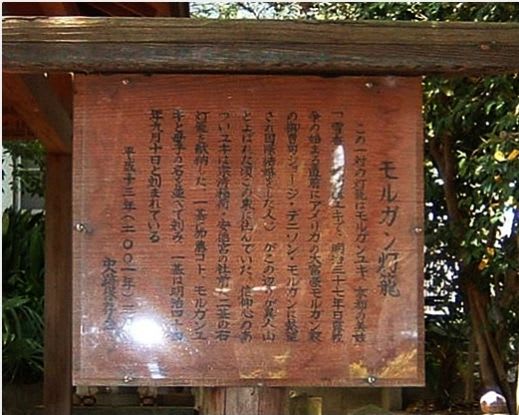 モルガン灯籠
この一対の灯籠はモルガンユキ 京都の美妓
「雪香」 加藤ユキで、明治三十七年日露戦
争の始まる直前にアメリカの大富豪モルガン財
の御曹司ジョージ・デニソン・モルガンに熱望
され国際結婚した人)がこの辺りが異人山
とよばれた頃この東に住んでいた、信仰心のあ
ついユキは宗清稲荷・安徳宮の社前に二基の石
灯籠を献納した 一基に加藤コト、モルガンユ
キと母子の名を並べて刻み 一基は明治四十四
年九月十日と刻まれている
平成十三年(二〇〇一年)三
史蹟保存会